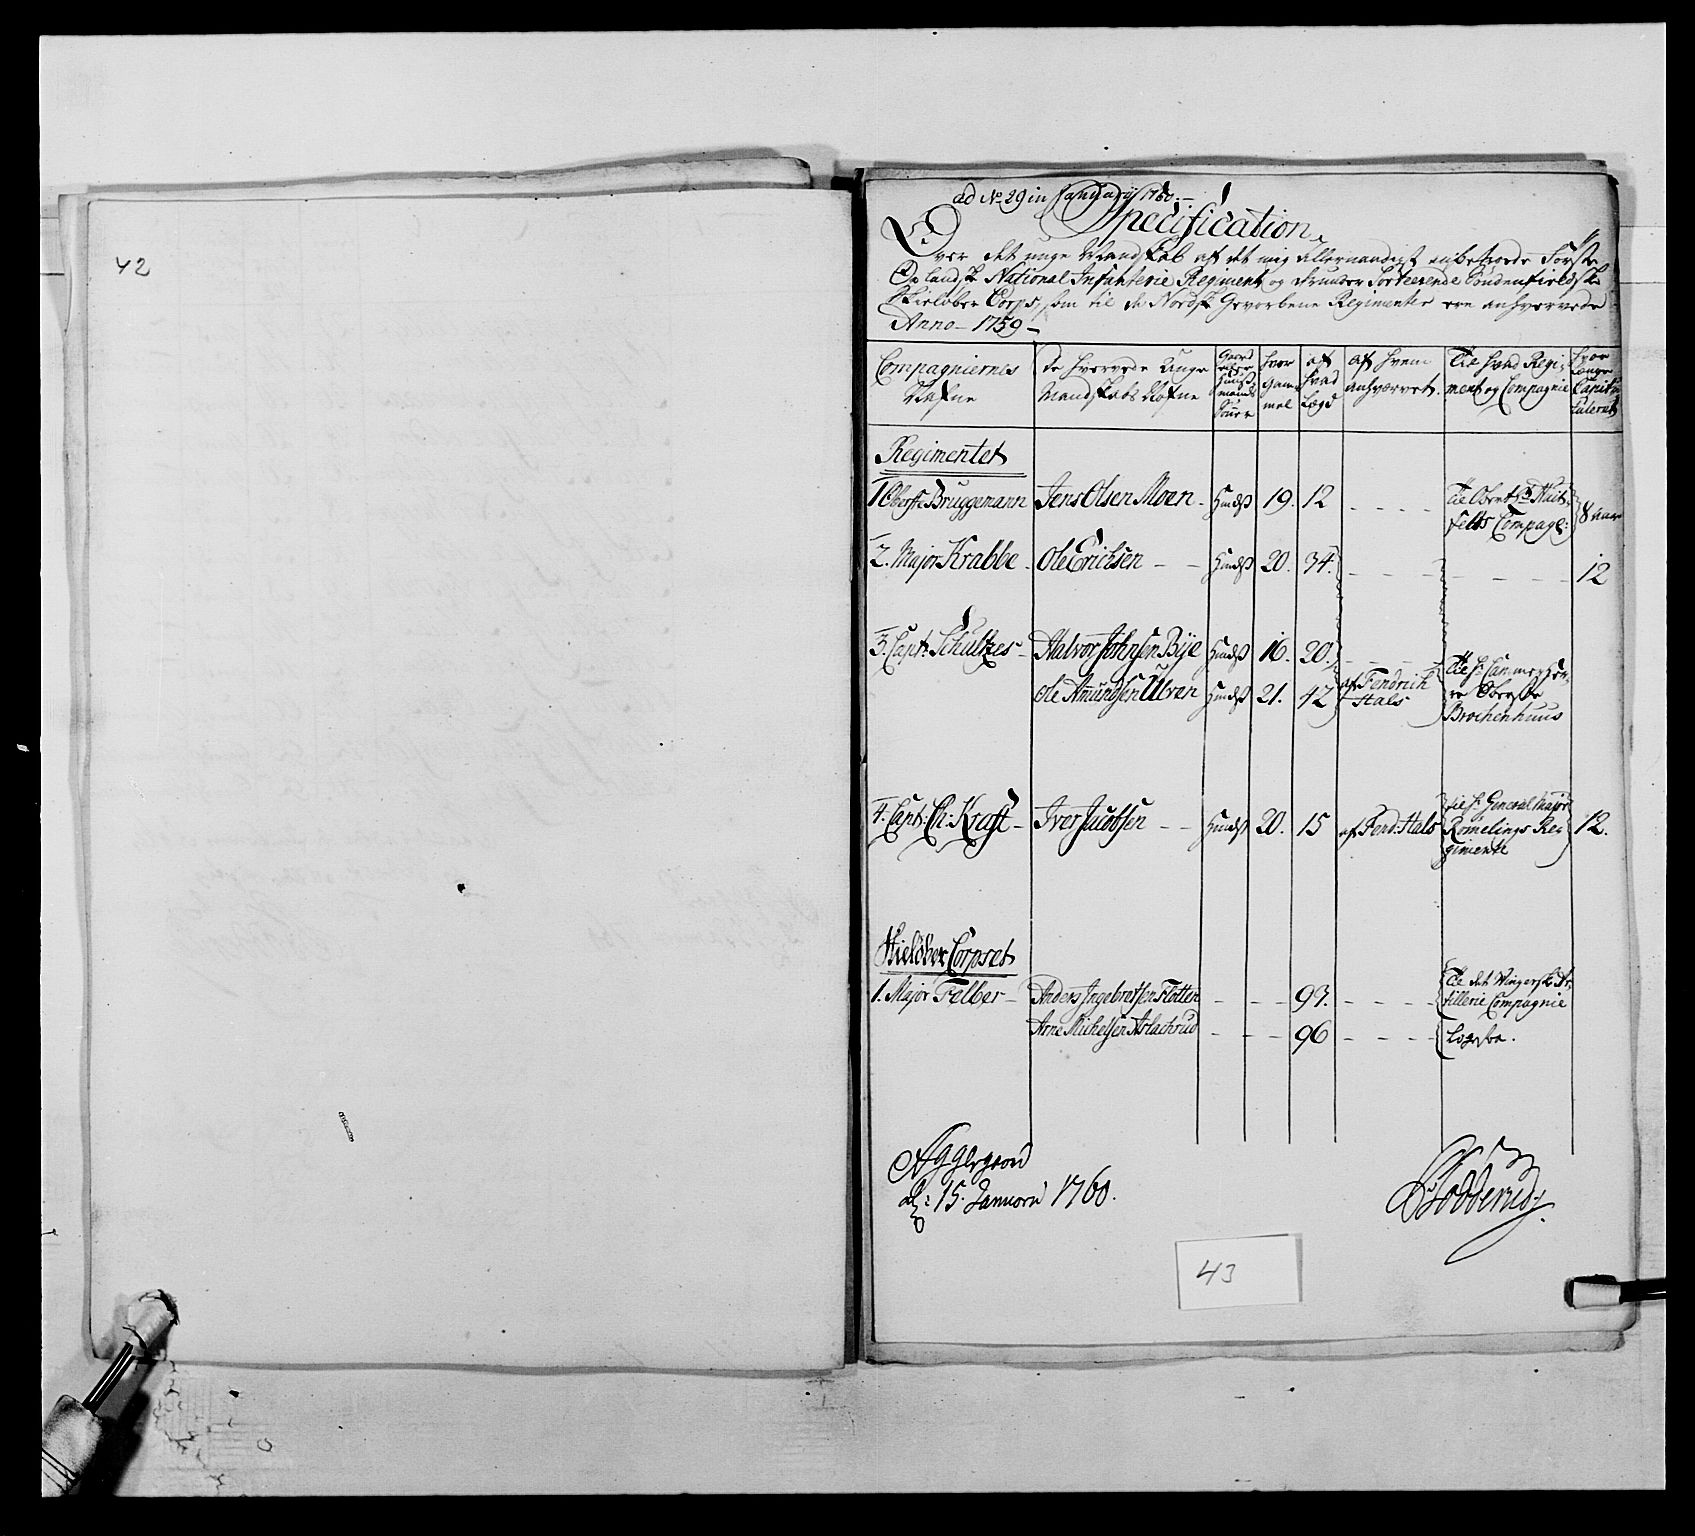 42
ad No 29 in Januarij 1760.
Specification
Over det unge Mandskab af det mig allernaadigst anbetroede Første
Oplandsk National Infanterie Regiment og derunder Sorteerende Søndenfieldske
Skieløber Corps, som til de Nordsk Gevorbene Regimenter ere anhvervede
Anno 1759
Compagniernes Nafne | De hvervede Unge Mandskabs Nafne | Gaard eller Huusmands Sønner | hvor Gammel | af hvad Lægd | af hvem anhværvet. | Til hvad Regiment og Compagnie | hvor længe Capituleret
Regimentet
1 Oberste Bruggemann | Jens Olsen Moen | Huusß | 19. | 12 | - - - - | Til Obristl: Huitfelts Compag: | 8 aar
2. Major Krabbe | Ole Erichsen | Huusß | 20. | 34. | - - - - | - - - - | 12
3. Capt: Schultzes | Halvor Johnsen Bye | Huusß | 16. | 20. | - - - -
Ole Amundsen Ulven | Huusß | 21. | 42 | af Fendrich Hals | Til Hr Cammer Herre Oberste Brochenhuus
4. Capt: Ch: Kraft | Iver Jacobsen | Huusß | 20. | 15 | af Fend: Hals | til Hr General Major Romelings Regimente | 12.
Skieløber Corpset
1. Major Felber | Anders Ingebretsen Flotten | - | - | 93. | - - - - | Til det Wingerske Artillerie Compagnie
Arne Michelsen Aslachrud | - | - | 96 | - - - - | Ligesaa.
Aggergaard
d: 15. Januari 1760.
43